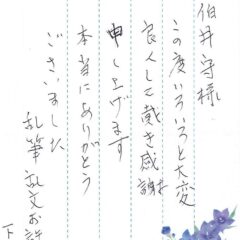 伯井守様
この度いろいろと大変
良くして戴き感謝
申し上げます
本当にありがとう
ございました
乱筆乱文お許
下